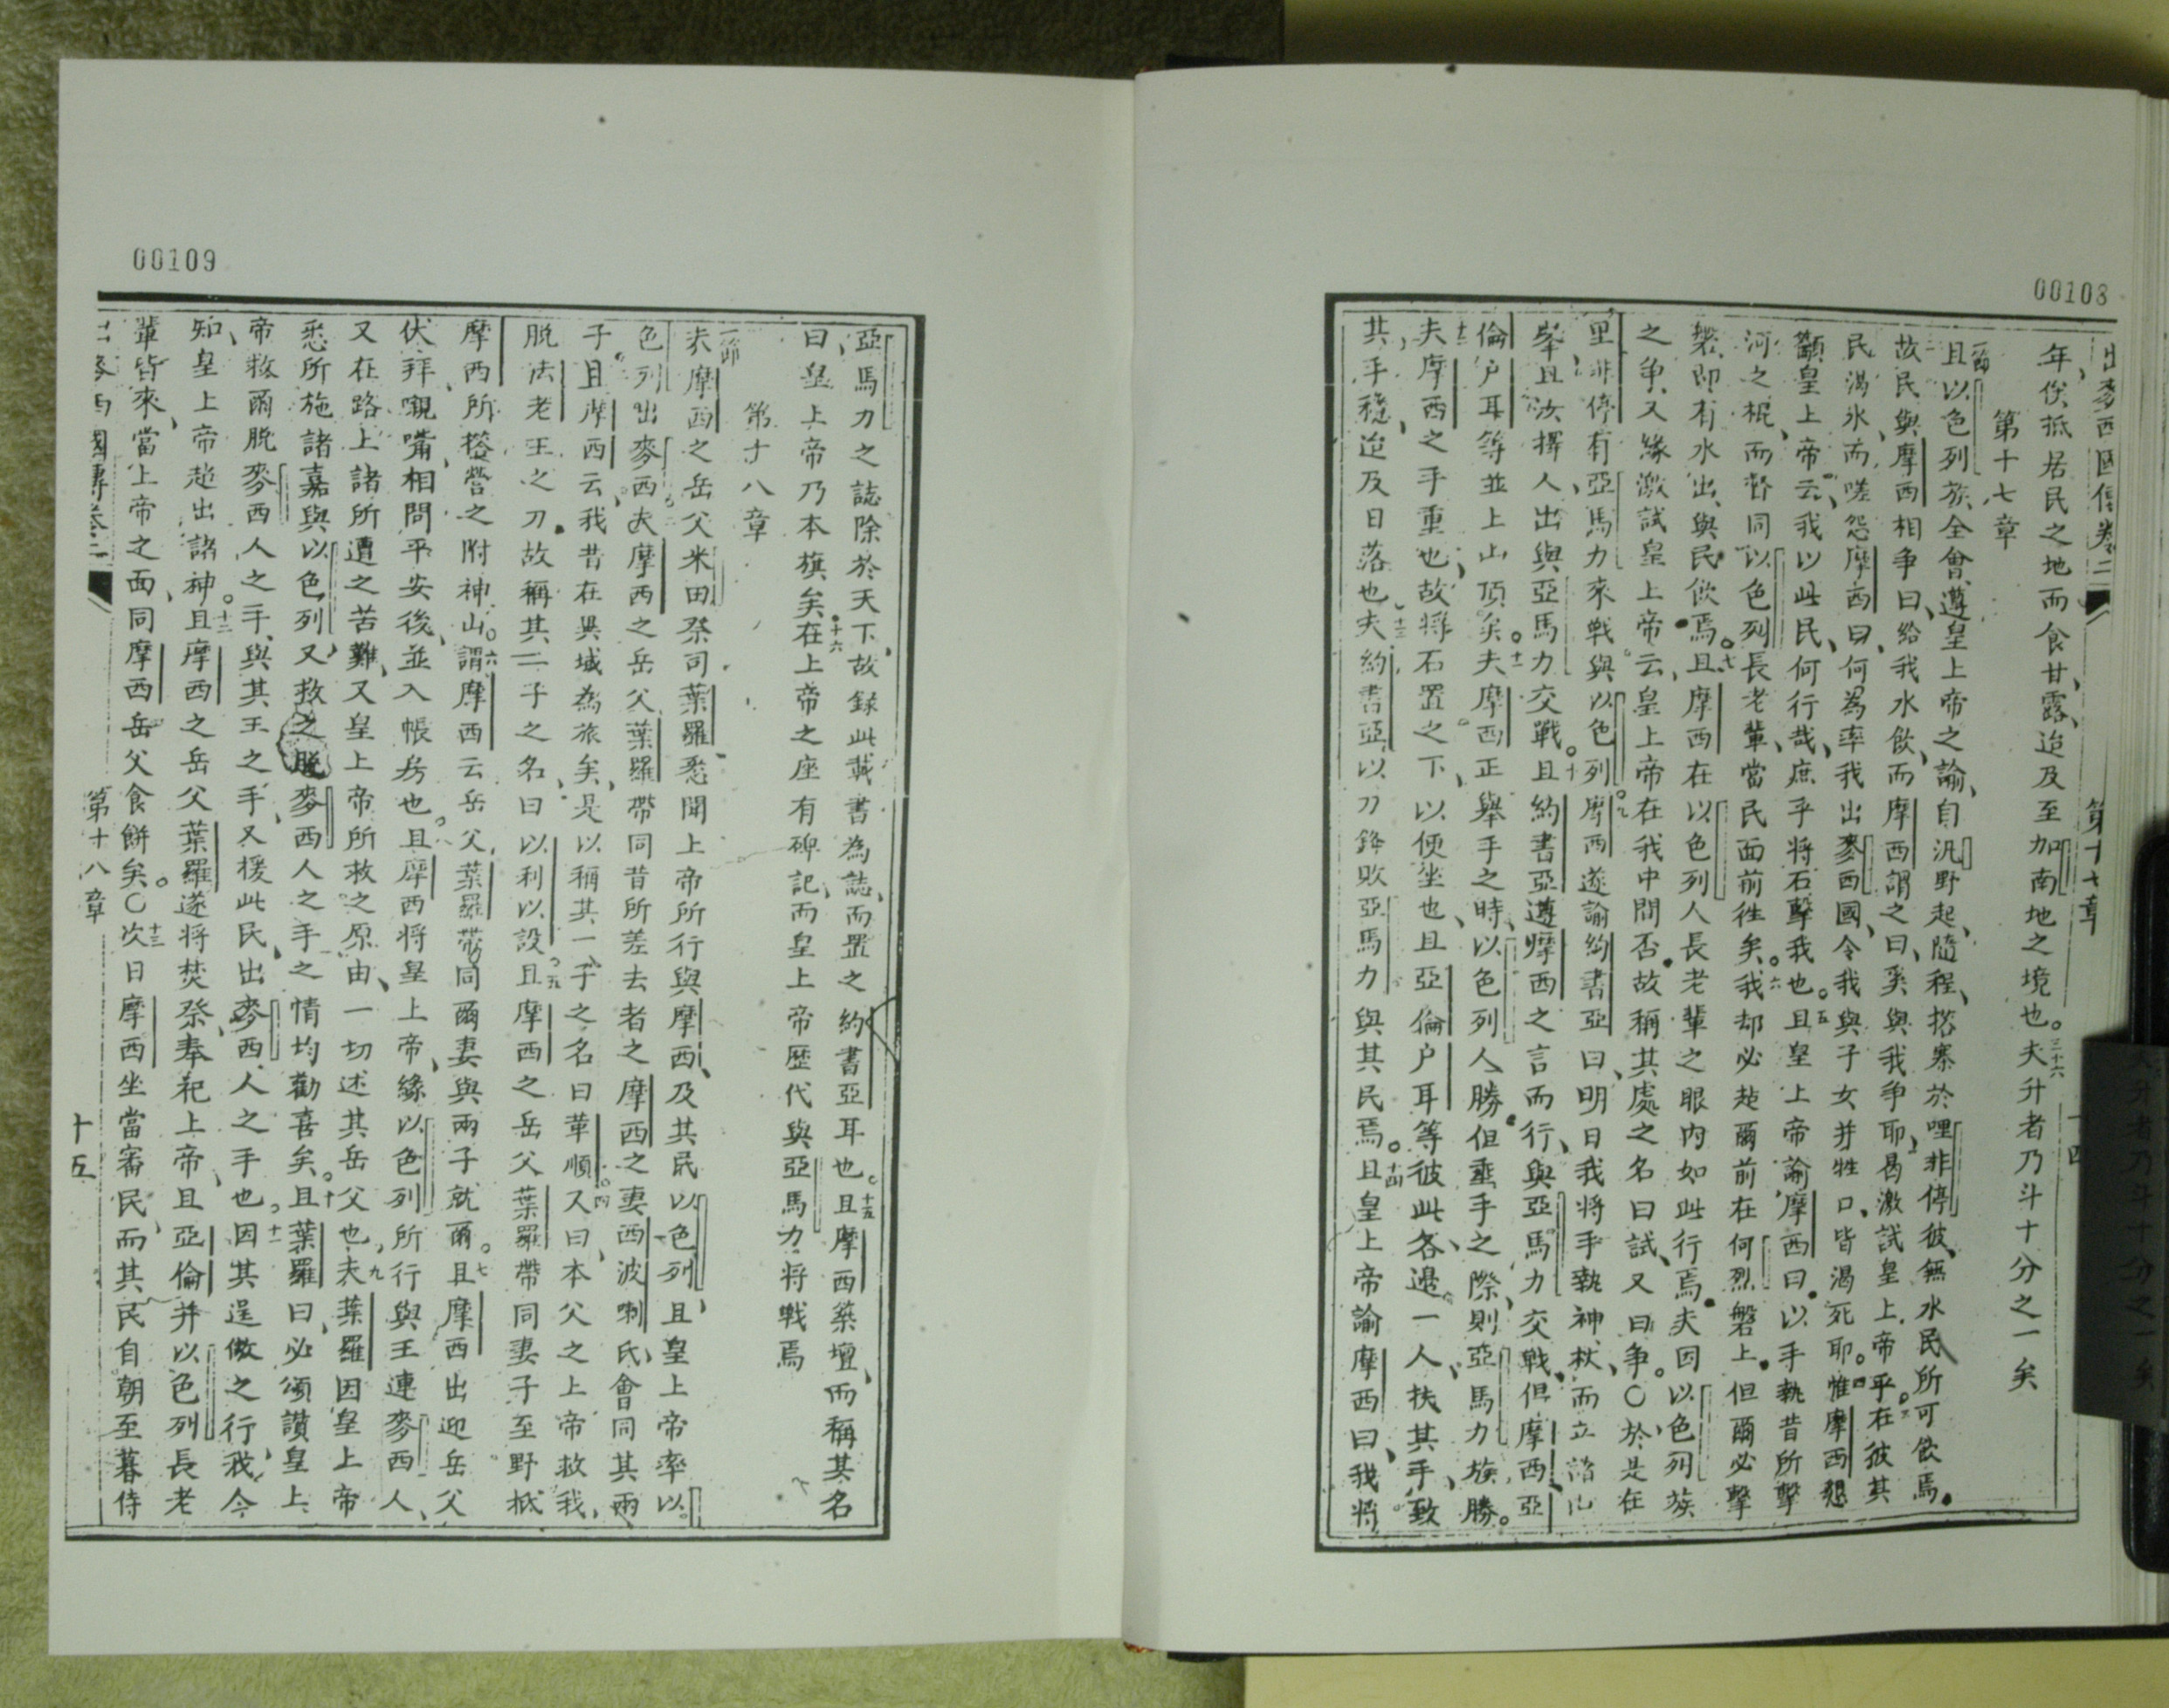 00108
出麥西國傳卷二 第十七章 十四
年終抵居民之地而食甘露迨及至加南地之境也三十六夫升者乃斗十分之一矣
第十七章
一節且以色列族全會遵皇上帝之諭自汛野起隨程搭寨於哩非停彼無水民所可飲焉
故民與摩西相爭曰給我水飲而摩西謂之曰奚與我爭耶曷激試皇上帝乎三在彼其
民渴水而嗟怨摩西曰何爲率我出麥西國令我與子女并牲口皆渴死耶四惟摩西懇
籲皇上帝云我以此民何行哉庶乎將石擊我也五且皇上帝諭摩西曰以手執昔所擊
河之棍而督同以色列長老輩當民面前徃矣六我却必趁爾前在何烈磐上但爾必擊
磐即有水出與民飲焉七且摩西在以色列人長老輩之眼內如此行焉夫因以色列族
之爭又緣激試皇上帝云皇上帝在我中間否故稱其處之名曰試又曰爭〇於是在
里非停有亞馬力來戰與以色列九摩西遂諭約書亞曰明日我將手執神杖而立諸山
峯且汝擇人出與亞馬力交戰十且約書亞遵摩西之言而行與亞馬力交戰但摩西亞
倫户耳等並上山頂矣十一夫摩西正舉手之時以色列人勝但垂手之際則亞馬力族勝
十二夫摩西之手重也故將石置之下以便坐也且亞倫户耳等彼此各邊一人扶其手致
其手穩迨及日落也十三夫約書亞以刀鋒敗亞馬力與其民焉十四且皇上帝諭摩西曰我將
00109
亞馬力之誌除於天下故録此載書為誌而置之約書亞耳也十五且摩西築壇而稱其名
曰皇上帝乃本旗矣十六在上帝之座有碑記而皇上帝歷代與亞馬力將戰焉
第十八章
一節夫摩西之岳父米田祭司葉羅悉聞上帝所行與摩西及其民以色列且皇上帝率以
色列出麥西二夫摩西之岳父葉羅帶同昔所差去者之摩西之妻西波喇氏會同其兩
子且摩西云我昔在異域為旅矣是以稱其一子之名曰革順四又曰本父之上帝救我
脱法老王之刀故稱其二子之名曰以利以設五且摩西之岳父葉羅帶同妻子至野抵
摩西所搭營之附神山六謂摩西云岳父葉羅帶同爾妻與兩子就爾七且摩西出迎岳父
伏拜嚫嘴相問平安後並入帳房也且摩西將皇上帝緣以色列所行與王連麥西人
又在路上諸所遭之苦難又皇上帝所救之原由一切述其岳父也九夫葉羅因皇上帝
悉所施諸嘉與以色列又救之脱麥西人之手之情均勸喜矣十且葉羅曰必頌讚皇上
帝救爾脱麥西人之手與其王之手又援此民出麥西人之手也十一因其逞傲之行我今
知皇上帝超出諸神十二且摩西之岳父葉羅遂將焚祭奉祀上帝且亞倫并以色列長老
輩皆來當上帝之面同摩西岳父食餅矣〇十三次日摩西坐當審民而其民自朝至暮侍
出麥西國傳卷二 第十八章 十五